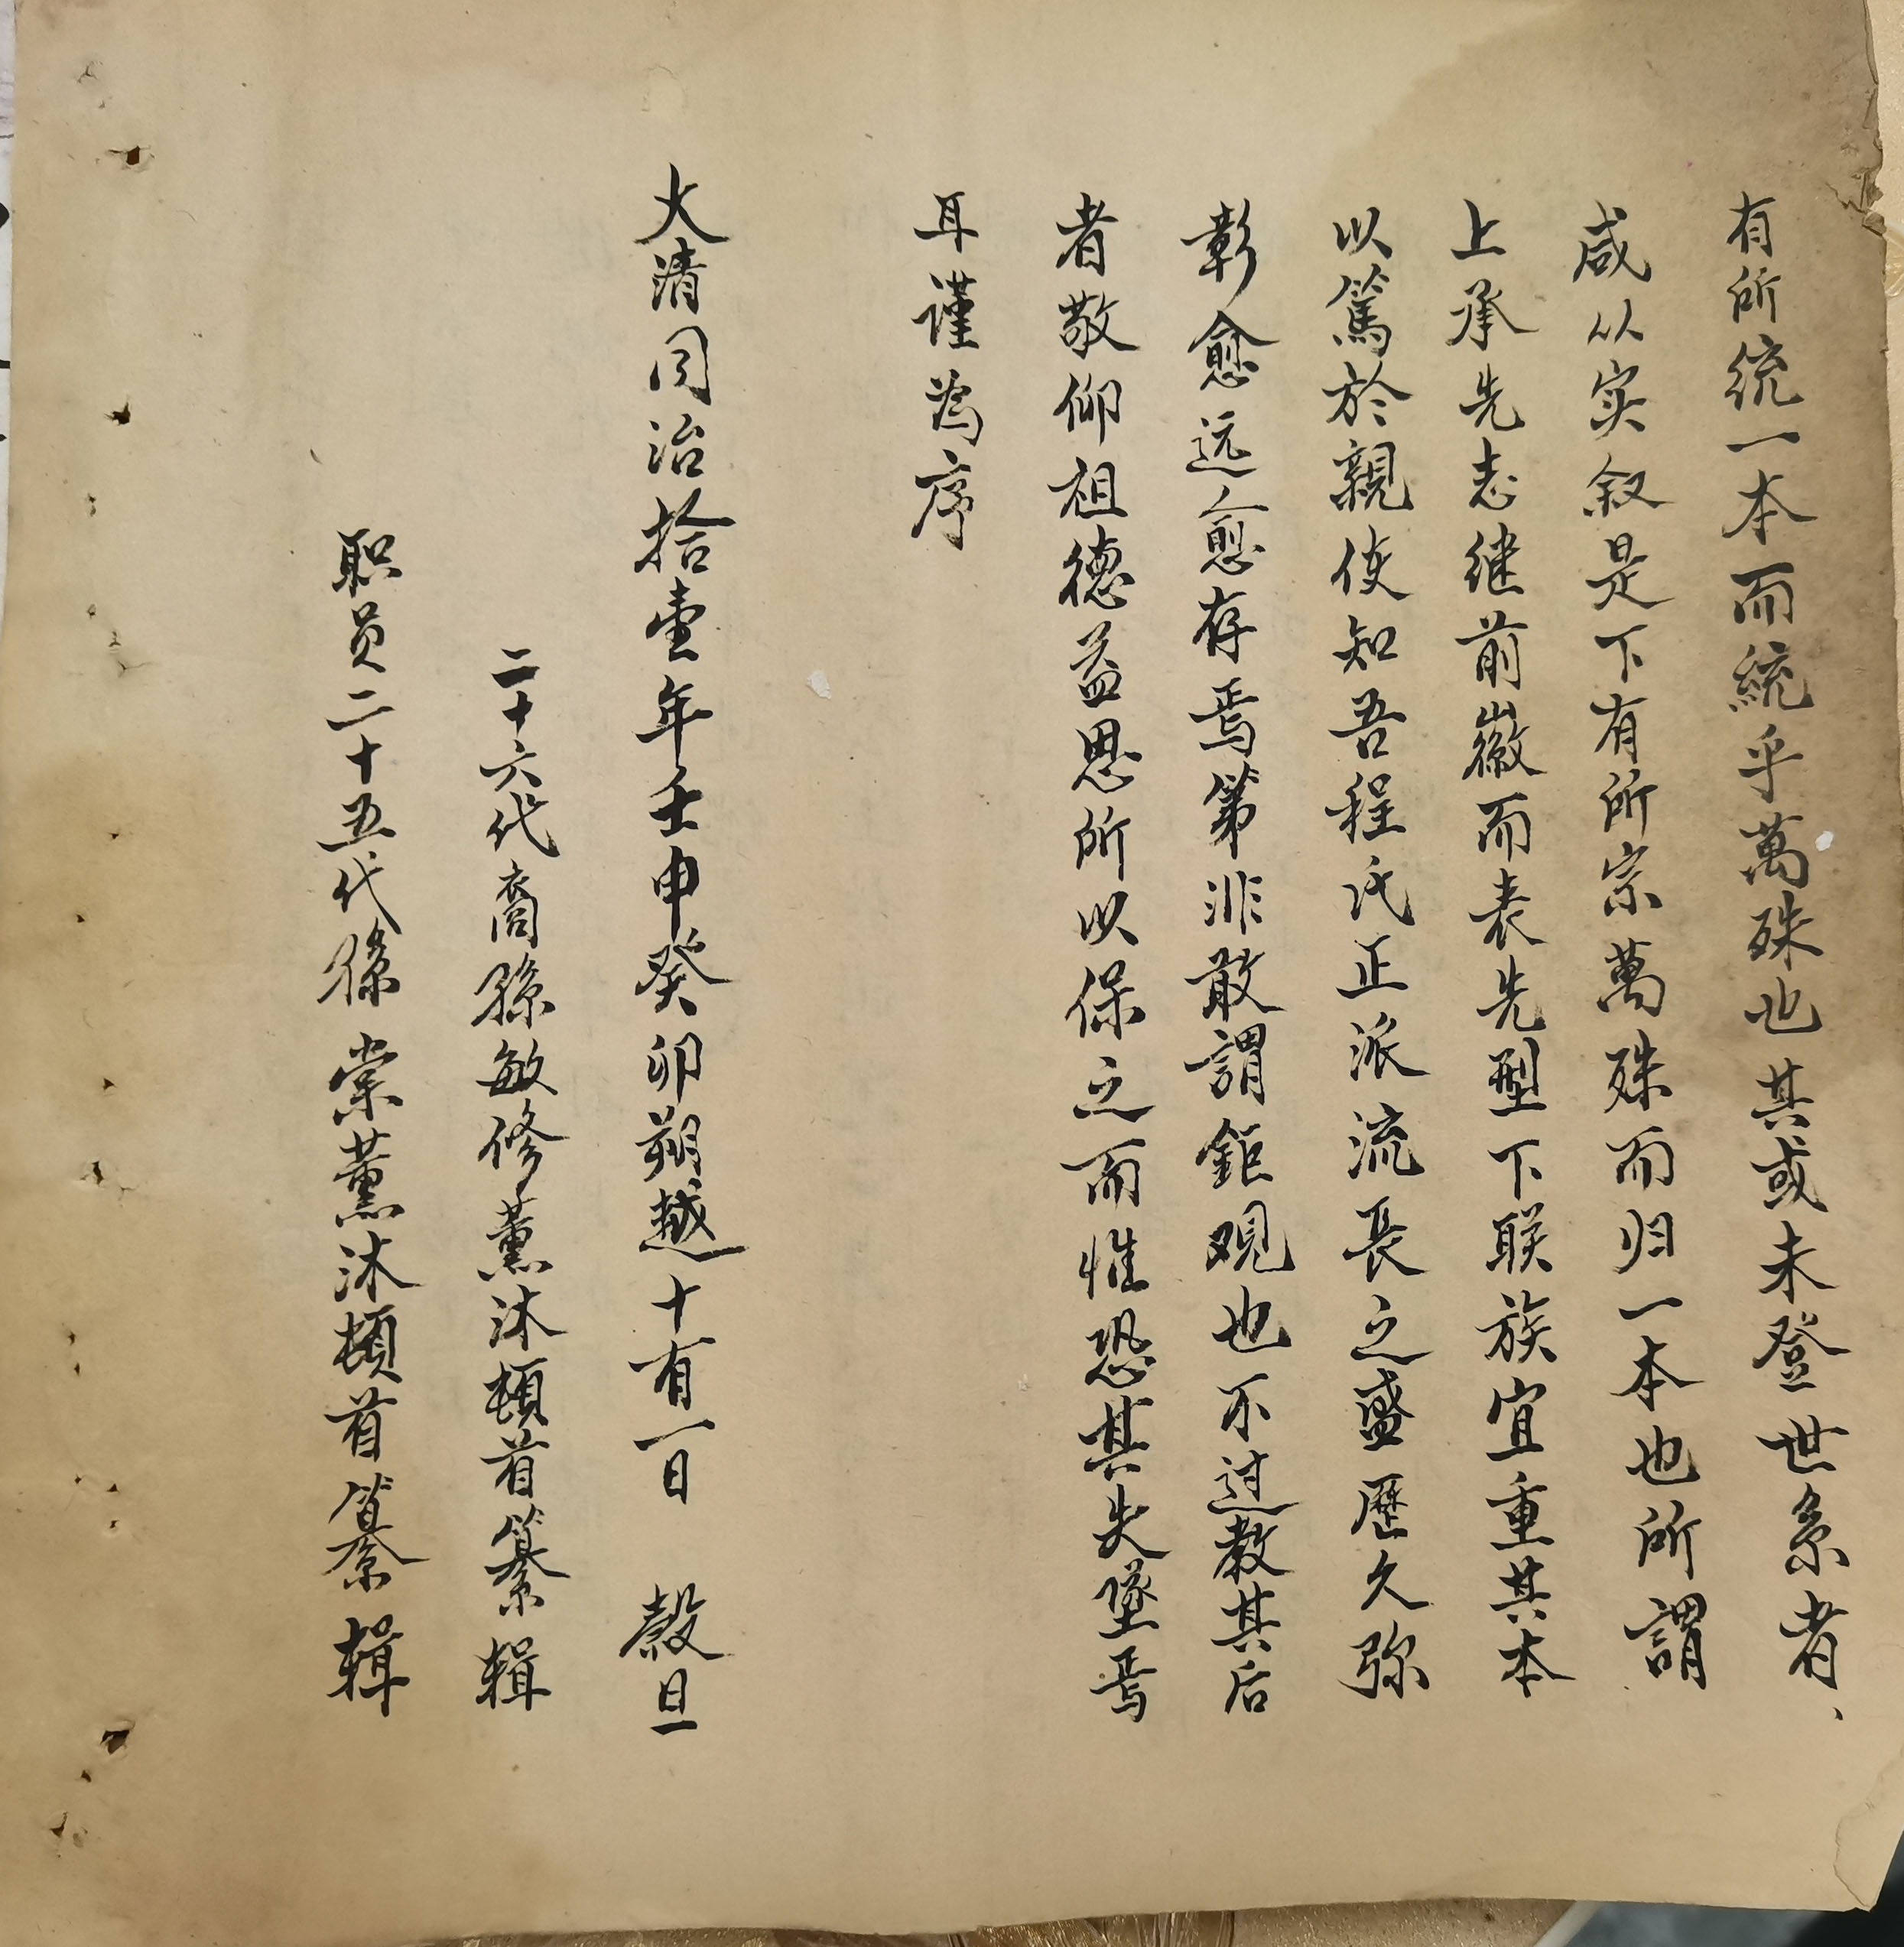 有所统一本而統乎萬殊也其或未登世系者、
咸从实叙是下有所宗萬殊而归一本也所謂
上承先志继前徽而表先型下联族宜重其本
以篤於親使知吾程氏正派流長之盛歷久弥
彰愈远愈存焉第非敢謂鉅观也不过教其后
者敬仰祖德益思所以保之而惟恐其失墜焉
耳谨为序
大清同治拾壹年壬申癸卯朔越十有一日 穀旦
二十六代裔孫敏修薰沐頓首纂輯
职员二十五代孫棠薰沐頓首纂輯